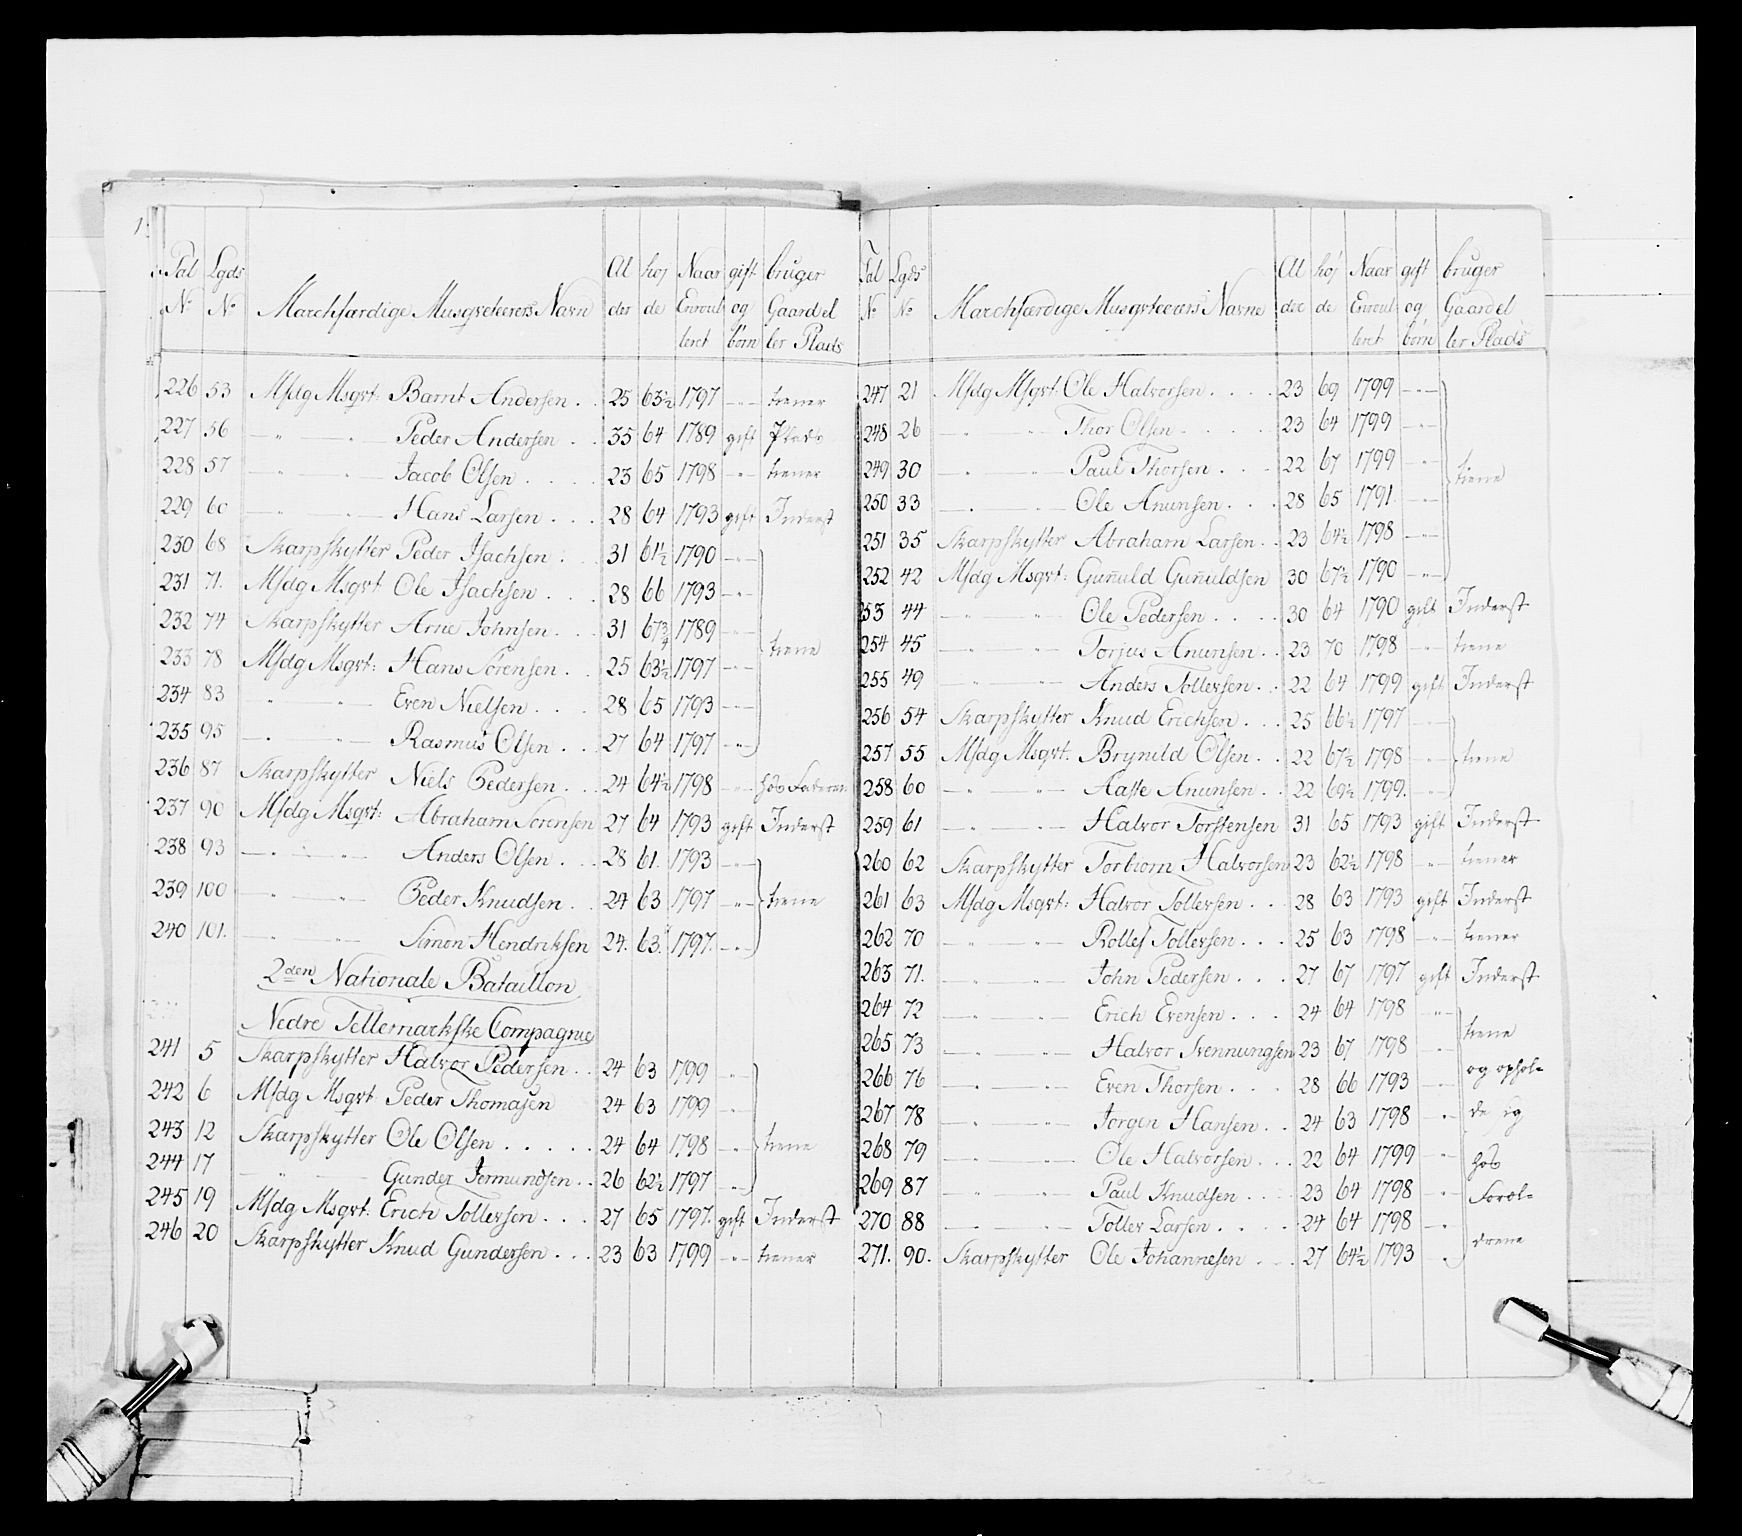 Tal Lgds Al høj Naar gift bruger
No No Marchfærdige Musqveteerers Navn der de Enroul og Gaard el
leret børn ler Plads
226 53 Msdg Msqvt: Barnt Andersen . . 25 63½ 1797 -"- tiener
227 56 —"— —"— Peder Andersen . . 35 64 1789 gift Plads
228 57 —"— —"— Jacob Olsen . . . . 23 65 1798 -"- tiener
229 60 —"— —"— Hans Larsen . . . 28 64 1793 gift Inderst
230 68 Skarpskytter Peder Isachsen . . 31 61½ 1790 -"-
231 71. Msdg Msqvt Ole Isachsen . . . 28 66 1793 -"-
232 74 Skarpskytter Arne Johnsen . . . 31 67¾ 1789 -"- tiene
233 78 Msdg Msqvt: Hans Sørensen . . 25 63½ 1797 -"-
234 83 " —"— Even Nielsen . . . 28 65 1793 -"-
235 95 —"— —"— Rasmus Olsen . . . 27 64 1797 -"-
236 87 Skarpskytter Niels Pedersen . . . 24 64½ 1798 -"- hos Faderen
237 90 Msdg Msqvt: Abraham Sørensen 27 64 1793 gift Inderst
238 93 —"— —"— Anders Olsen . . . 28 61. 1793 -"-
239 100 " —"— Peder Knudsen . . 24 63 1797 -"- tiene
240 101. —"— —"— Simon Hendriksen 24. 63. 1797. -"-
2den Nationale Bataillon
Nedre Tellemarkske Compagnie
241 5 Skarpskytter Halvor Pedersen . . 24 63 1799 -"-
242 6 Msdg Msqvt Peder Thomasen 24 63 1799 -"-
243 12 Skarpskytter Ole Olsen . . . . . 24 64 1798 -"- tiene
244 17 —"— Gunder Jermundsen . . 26 62½ 1797 -"-
245 19 Msdg Msqvt: Erich Tollevsen . . . 27 65 1797. gift Inderst
246 20 Skarpskytter Knud Gundersen . . . 23 63 1799 -"- tiener
Tal Lgds Al høj Naar gift bruger
No No Marchfærdige Musqveteerers Navne der de Enroul og Gaard el
leret børn ler Plads
247 21 Msdg Msqvt: Ole Halvorsen . . . . 23 69 1799 -"-
248 26 —"— —"— Thor Olsen . . . . . 23 64 1799 -"-
249 30 —"— —"— Paul Thorsen . . . 22 67 1799 -"- tiene
250 33 —"— —"— Ole Anunsen . . . 28 65 1791. -"-
251 35 Skarpskytter Abraham Larsen . . 23 64½ 1798 -"-
252 42 Msdg Msqvt: Gunuld Gunuldsen 30 67½ 1790 -"-
253 44 —"— —"— Ole Pedersen . . . . 30 64 1790 gift Inderst
254 45 —"— —"— Torjus Anunsen . . 23 70 1798 -"- tiene
255 49 —"— —"— Anders Tollevsen . . 22 64 1799 gift Inderst
256 54 Skarpskytter Knud Erichsen . . . 25 66½ 1797 -"-
257 55 Msdg Msqvt: Brynild Olsen . . 22 67½ 1798 -"- tiene
258 60 —"— —"— Aasse Anunsen . . 22 69½ 1799. -"-
259 61 —"— —"— Halvor Torstensen 31 65 1793 gift Inderst
260 62 Skarpskytter Torbiorn Halvorsen 23 62½ 1798 -"- tiener
261 63 Msdg Msqvt: Halvor Tollevsen . . . 28 63 1793 gift Inderst
262 70 —"— —"— Rollef Tollevsen . . . 25 63 1798 -"- tiener
263 71. —"— —"— John Pedersen . . . 27 67 1797 gift Inderst
264 72 —"— —"— Erich Evensen . . . 24 64 1798 -"-
265 73 —"— —"— Halvor Svennungsen 23 67 1798 -"- tiene
266 76 —"— —"— Even Thorsen . . . 28 66 1793 -"- og ophol-
267 78 —"— —"— Jørgen Hansen . . 24 63 1798 " de sig
268 79 —"— —"— Ole Halvorsen . . . 22 64 1799 -"- hos
269 87 —"— —"— Paul Knudsen . . . 23 64 1798 " Foræl-
270 88 —"— —"— Tollev Larsen . . . . 24 64 1798 -"
271. 90. Skarpskytter Ole Johannesen . . . 27 64½ 1793 " drene